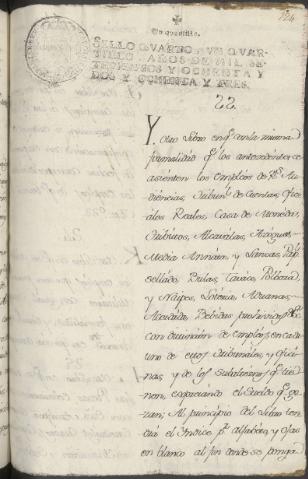 Un quartillo.
SELLO QVARTO, VN QVAR-
TILLO, AÑOS DE MIL SE-
TECIENTOS Y OCHENTA Y
DOS Y OCHENTA Y TRES.
22.
Y otro Libro en q.e con la misma
formalidad q.e los antecedentes se
asienten los empleos de R.s Au-
diencias, Tribun.s de Cuentas, Ofici-
ales Reales, Casa de Moneda,
Tributos, Alcavalas, Azogues,
Media Annata, y Lanzas, Pap.l
sellado, Bulas, Tavaco, Polvora,
y Naypes, Loteria, Aduanas,
Bebidas prohividas &c.
con distincion de empleos, en cada
uno de estos Tribunales, y Ofici-
nas, y de los subalternos q.e tie-
nen, expresando el Sueldo q.e go-
zan; Al principio del Libro ten-
drá el Yndice p.r alfabeto, y ojas
en blanco al fin donde se ponga